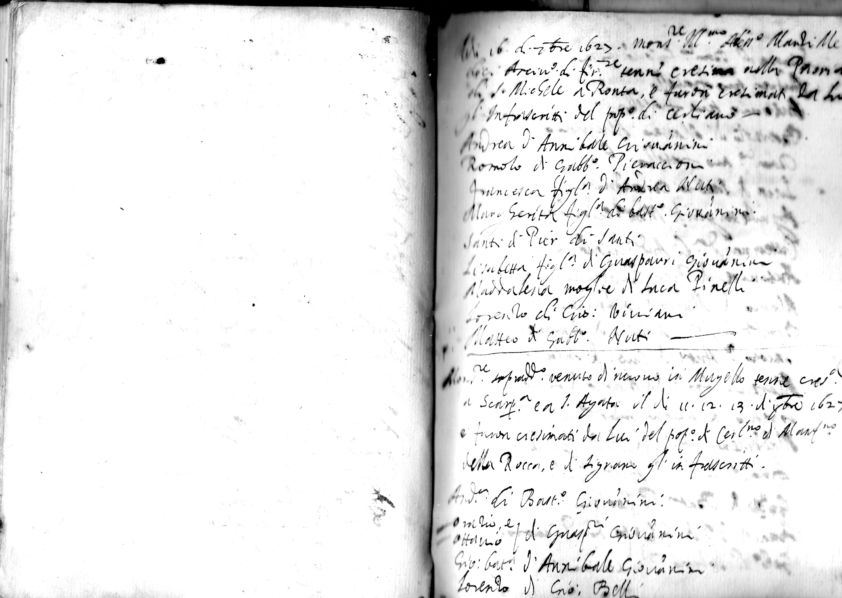 Adi 16 di 7bre 1627. mons.re Ill.mo Aless.o Marzi Me
dici Arciv.o di fir.ze tenne cresima nella Parroc
di S. Michele a Ronta, e furon cresimati da Lui
gl'Infrascritti del pop.o di Cerliano
Andrea d'Annibale Giovannini
Romolo di Gabb.o Pieraccioni
Francesca figl.a d'Andrea Nuti
Margherita figl.a di bast.o Giovannini
Santi di Pier di Santi
Lisabetta figl.a di Guasparri Giovannini
Maddalena moglie di Luca Pinelli
Lorenzo di Gio: Viviani
Matteo di Gabb.o Nuti
Mons.re sopradd.o venuto di nuovo in Mugello tenne cres.a
a Scarp.a e a S. Agata il di 11. 12. 13. di 9bre 1627
e furon cresimati da Lui del pop.o di Cerl.no di
della Rocca, e di Signano gl'infrascritti.
And.a di Bast.o Giovannini.
Orazio, e
Ottavio di Guasp.ri Giovannini
Gio: bat.a d'Annibale Giovannini
Lorenzo di Gio: Belli